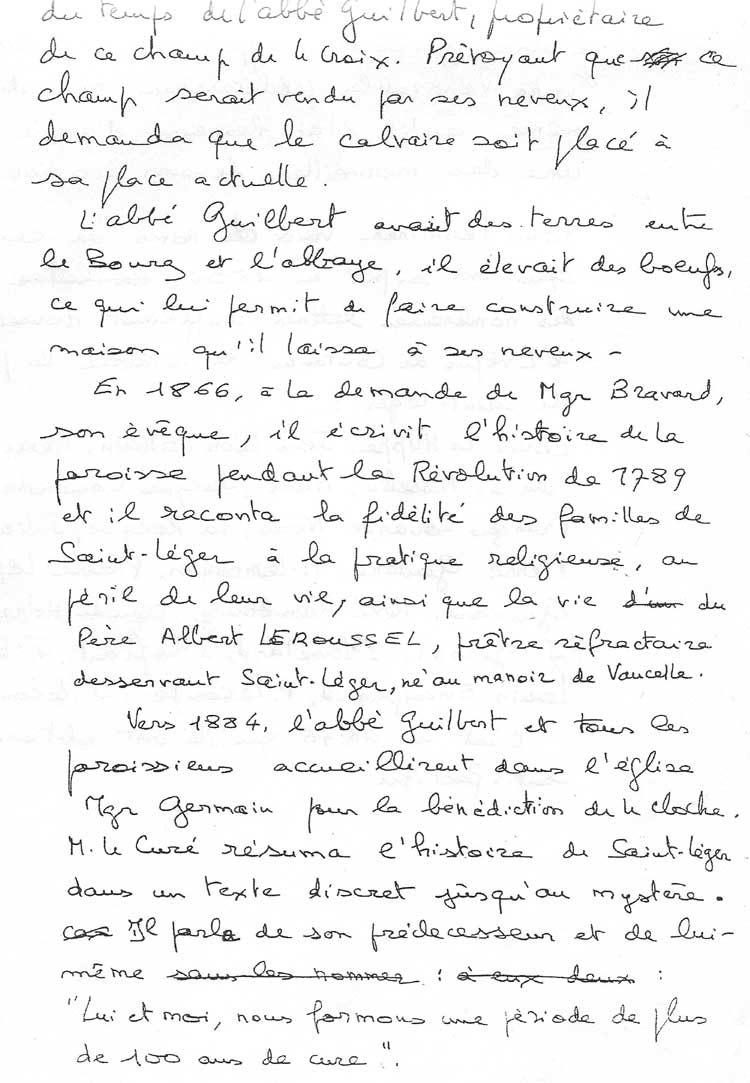 du temps de l'abbé Guilbert, propriétaire
de ce champ de la Croix. Prévoyant que ce
champ serait vendu par ses neveux, il
demanda que le calvaire soit placé à
sa place actuelle.
L'abbé Guilbert avait des terres entre
le Bourg et l'abbaye, il élevait des boeufs,
ce qui lui permit de faire construire une
maison qu'il laissa à ses neveux -
En 1866, à la demande de Mgr Bravard,
son évêque, il écrivit l'histoire de la
paroisse pendant la Révolution de 1789
et il raconta la fidélité des familles de
Saint-Léger à la pratique religieuse, au
péril de leur vie, ainsi que la vie d'un du
Père Albert LEROUSSEL, prêtre réfractaire
desservant Saint-Léger, né au manoir de Vaucelle.
Vers 1884, l'abbé Guilbert et tous les
paroissiens accueillirent dans l'église
Mgr Germain pour la bénédiction de la cloche.
M. le Curé résuma l'histoire de Saint-Léger
dans un texte discret jusqu'au mystère.
Il parle de son prédecesseur et de lui-
même sans les nommer : à eux deux :
"Lui et moi, nous formons une période de plus
de 100 ans de cure".